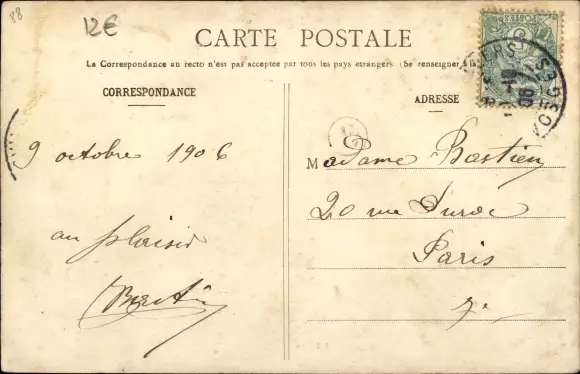 88
12€
CARTE POSTALE
La Correspondance au recto n'est pas acceptée par tous les pays étrangers (Se renseigner à la
CORRESPONDANCE
ADRESSE
9 octobre 1906
au plaisir
Madame Bastien
20 rue Duroc
Paris
7e
POSTES
VOSGES
06